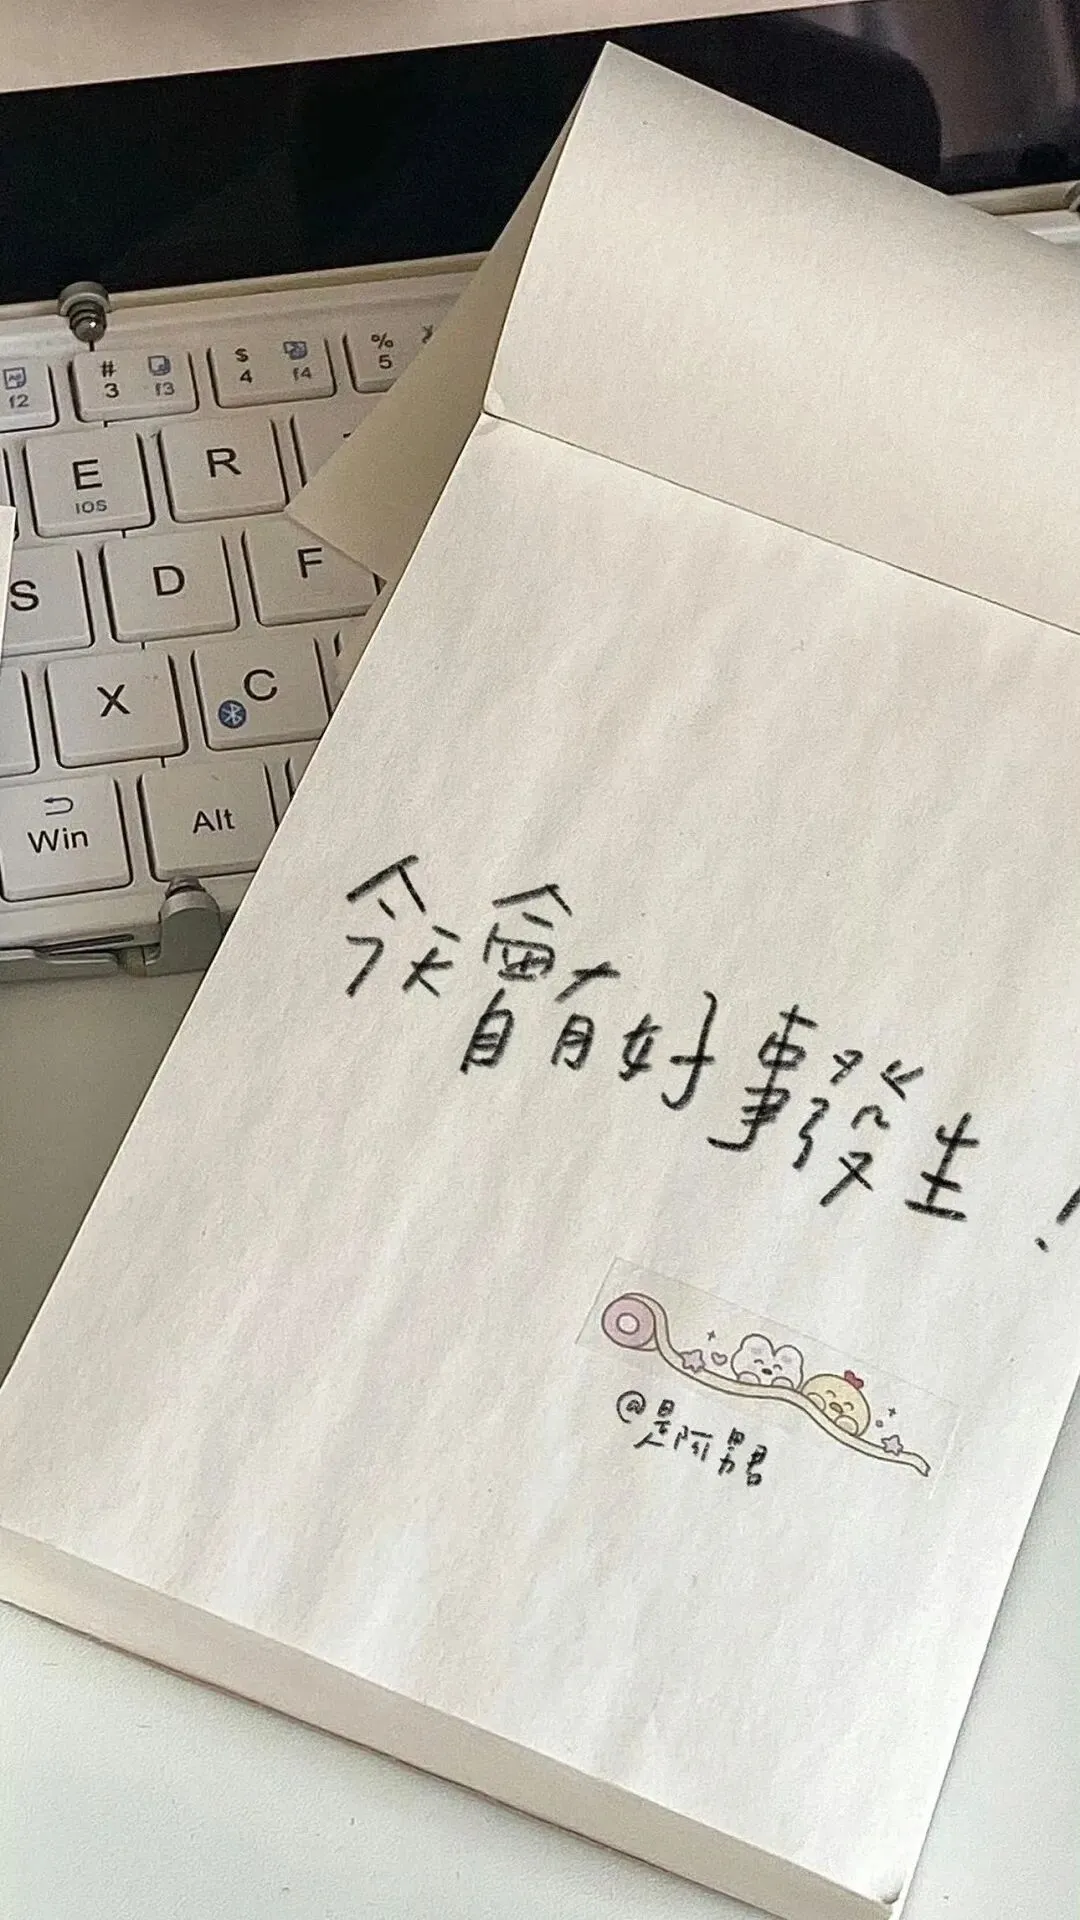 # 3 f3
$ 4 f4
% 5
f2
E
IOS
R
S
D
F
X
C
Win
Alt
今天會有好事發生!
@是阿男君